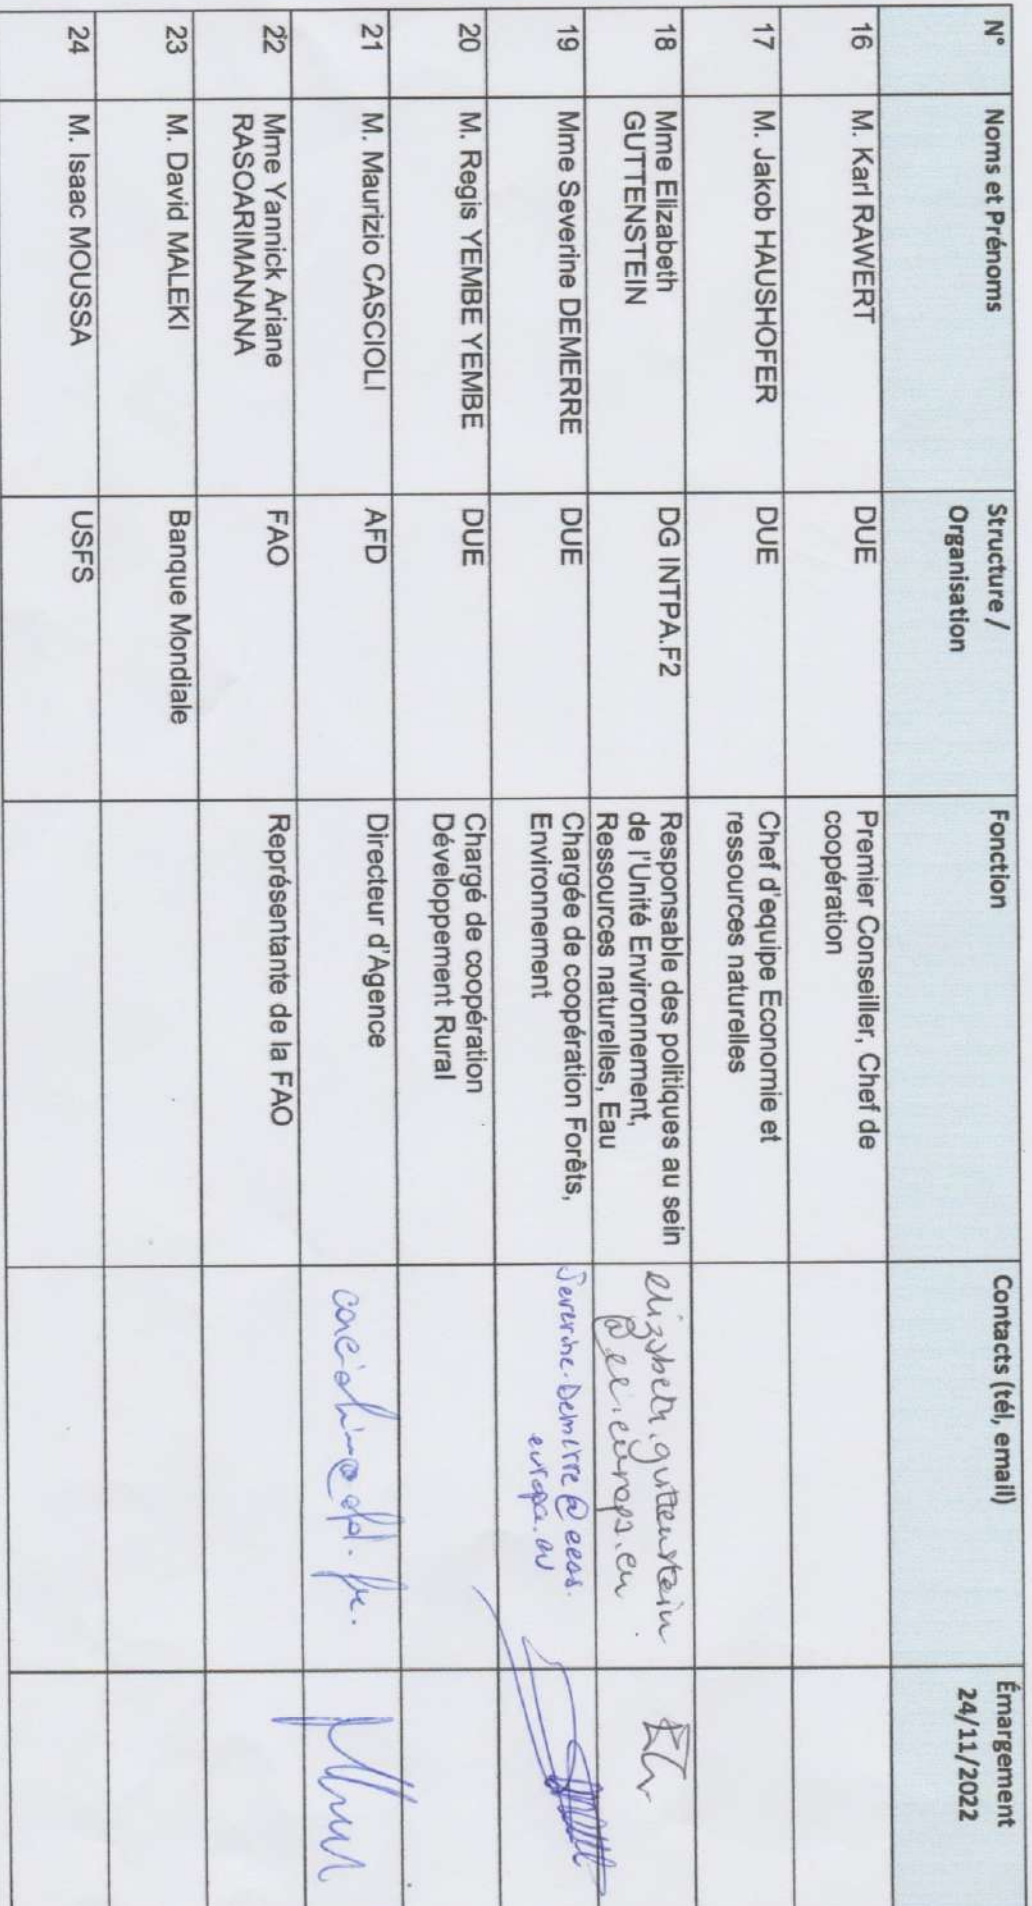 N° Noms et Prénoms Structure / Organisation Fonction Contacts (tél, email) Émargement 24/11/2022
16 M. Karl RAWERT DUE Premier Conseiller, Chef de
coopération
17 M. Jakob HAUSHOFER DUE Chef d'equipe Economie et
ressources naturelles
18 Mme Elizabeth
GUTTENSTEIN
DG INTPA.F2
Responsable des politiques au sein
de l'Unité Environnement,
Ressources naturelles, Eau
elizabeth.guttenstein
@ec.europa.eu
19 Mme Severine DEMERRE DUE Chargée de coopération Forêts,
Environnement
Severine.Demerre@eeas.
europa.eu
20 M. Regis YEMBE YEMBE DUE Chargé de coopération
Développement Rural
21 M. Maurizio CASCIOLI AFD Directeur d'Agence
22 Mme Yannick Ariane
RASOARIMANANA
FAO Représentante de la FAO
23 M. David MALEKI Banque Mondiale
24 M. Isaac MOUSSA USFS